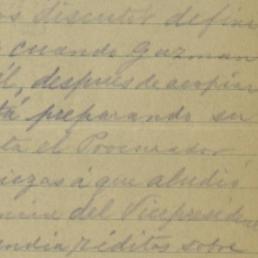 os discutir defini
cuando Guzman
él, después de acopiar
tá preparando su
ta el Procurador
iezas á que aludió
del Vicepresiden
réditos sobre